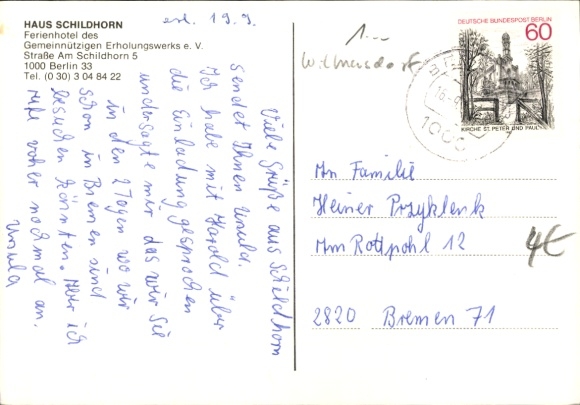 HAUS SCHILDHORN
Ferienhotel des
Gemeinnützigen Erholungswerks e. V.
Straße Am Schildhorn 5
1000 Berlin 33
Tel. (0 30) 3 04 84 22
erl. 19.9.
Viele Grüße aus Schildhorn
sendet Ihnen Ursula.
Ich habe mit Harold über
die Einladung gesprochen
und er sagte mir das wir Sie
in den 2 Tagen wo wir
schon in Bremen sind
besuchen könnten. Aber ich
rufe vorher nochmal an.
Ursula
1.--
Wilmersdorf
DEUTSCHE BUNDESPOST BERLIN
60
KIRCHE ST. PETER UND PAUL
1000
An Familie
Heiner Przyklenk
Am Rottpohl 12
2820 Bremen 71
4€